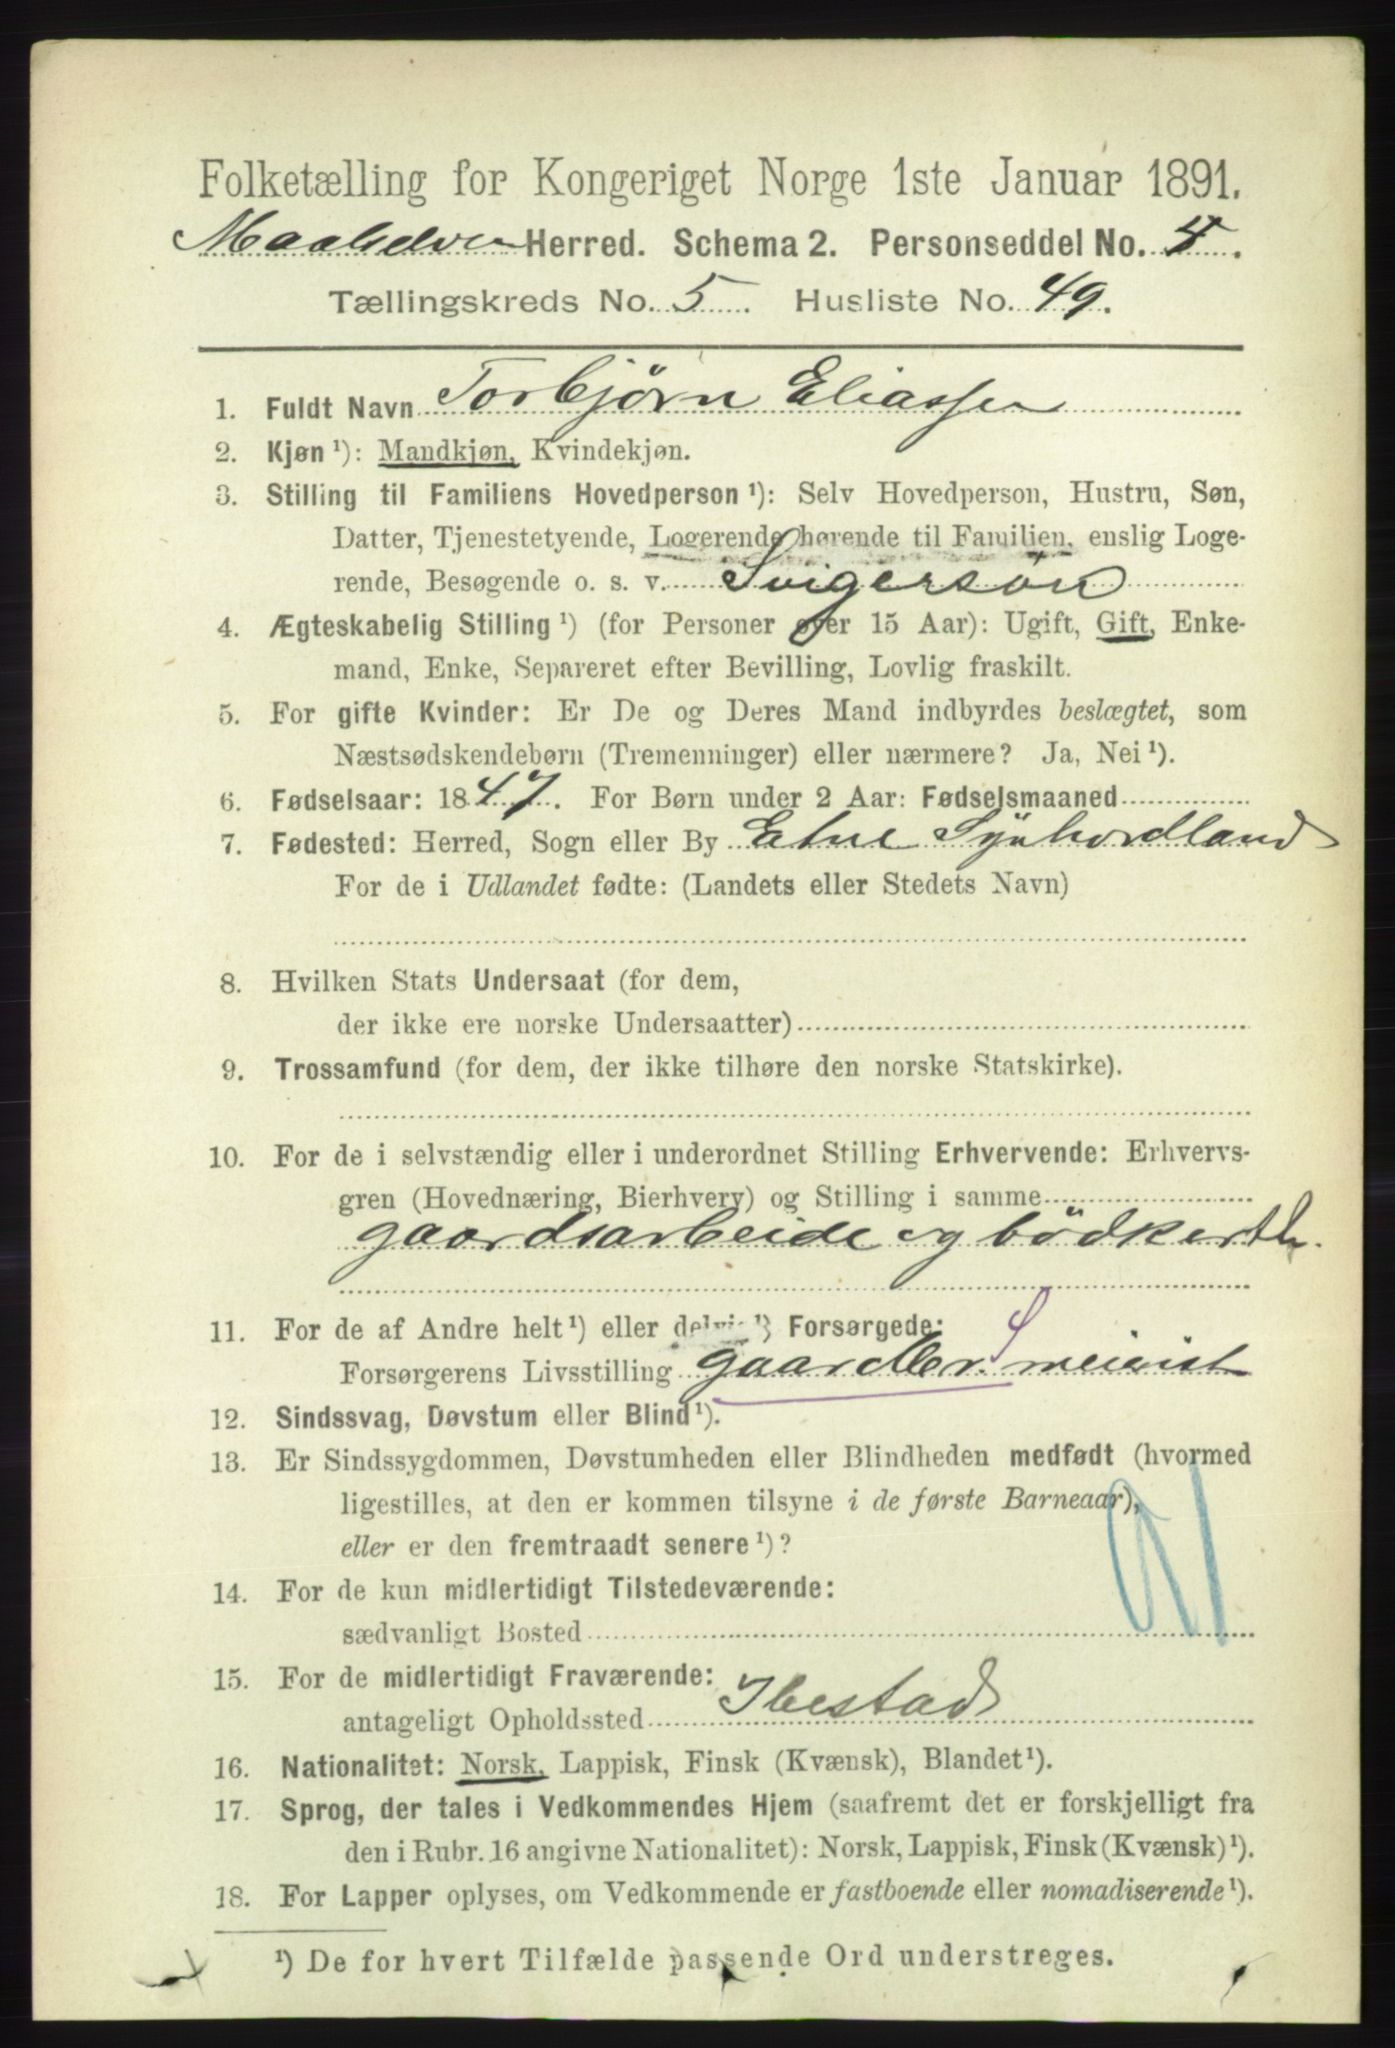 Folketælling for Kongeriget Norge 1ste Januar 1891.
Maalselven Herred. Schema 2. Personseddel No. 4.
Tællingskreds No. 5. Husliste No. 49.
1. Fuldt Navn Torbjørn Eliassen
2. Kjøn ¹): Mandkjøn, Kvindekjøn.
3. Stilling til Familiens Hovedperson ¹): Selv Hovedperson, Hustru, Søn,
Datter, Tjenestetyende, Logerende hørende til Familien, enslig Loge-
rende, Besøgende o. s. v. Svigersøn
4. Ægteskabelig Stilling ¹) (for Personer over 15 Aar): Ugift, Gift, Enke-
mand, Enke, Separeret efter Bevilling, Lovlig fraskilt.
5. For gifte Kvinder: Er De og Deres Mand indbyrdes beslægtet, som
Næstsødskendebørn (Tremenninger) eller nærmere? Ja, Nei ¹).
6. Fødselsaar: 1847. For Børn under 2 Aar: Fødselsmaaned
7. Fødested: Herred, Sogn eller By Etne Synhordland
For de i Udlandet fødte: (Landets eller Stedets Navn)
8. Hvilken Stats Undersaat (for dem,
der ikke ere norske Undersaatter)
9. Trossamfund (for dem, der ikke tilhøre den norske Statskirke).
10. For de i selvstændig eller i underordnet Stilling Erhvervende: Erhvervs-
gren (Hovednæring, Bierhverv) og Stilling i samme
gaardsarbeide og bödker
11. For de af Andre helt ¹) eller delvis ¹) Forsørgede: S
Forsørgerens Livsstilling
12. Sindssvag, Døvstum eller Blind ¹).
13. Er Sindssygdommen, Døvstumheden eller Blindheden medfødt (hvormed
ligestilles, at den er kommen tilsyne i de første Barneaar),
eller er den fremtraadt senere ¹)?
14. For de kun midlertidigt Tilstedeværende:
sædvanligt Bosted
15. For de midlertidigt Fraværende:
antageligt Opholdssted Ibestad
16. Nationalitet: Norsk, Lappisk, Finsk (Kvænsk), Blandet ¹).
17. Sprog, der tales i Vedkommendes Hjem (saafremt det er forskjelligt fra
den i Rubr. 16 angivne Nationalitet): Norsk, Lappisk, Finsk (Kvænsk) ¹).
18. For Lapper oplyses, om Vedkommende er fastboende eller nomadiserende ¹).
¹) De for hvert Tilfælde passende Ord understreges.